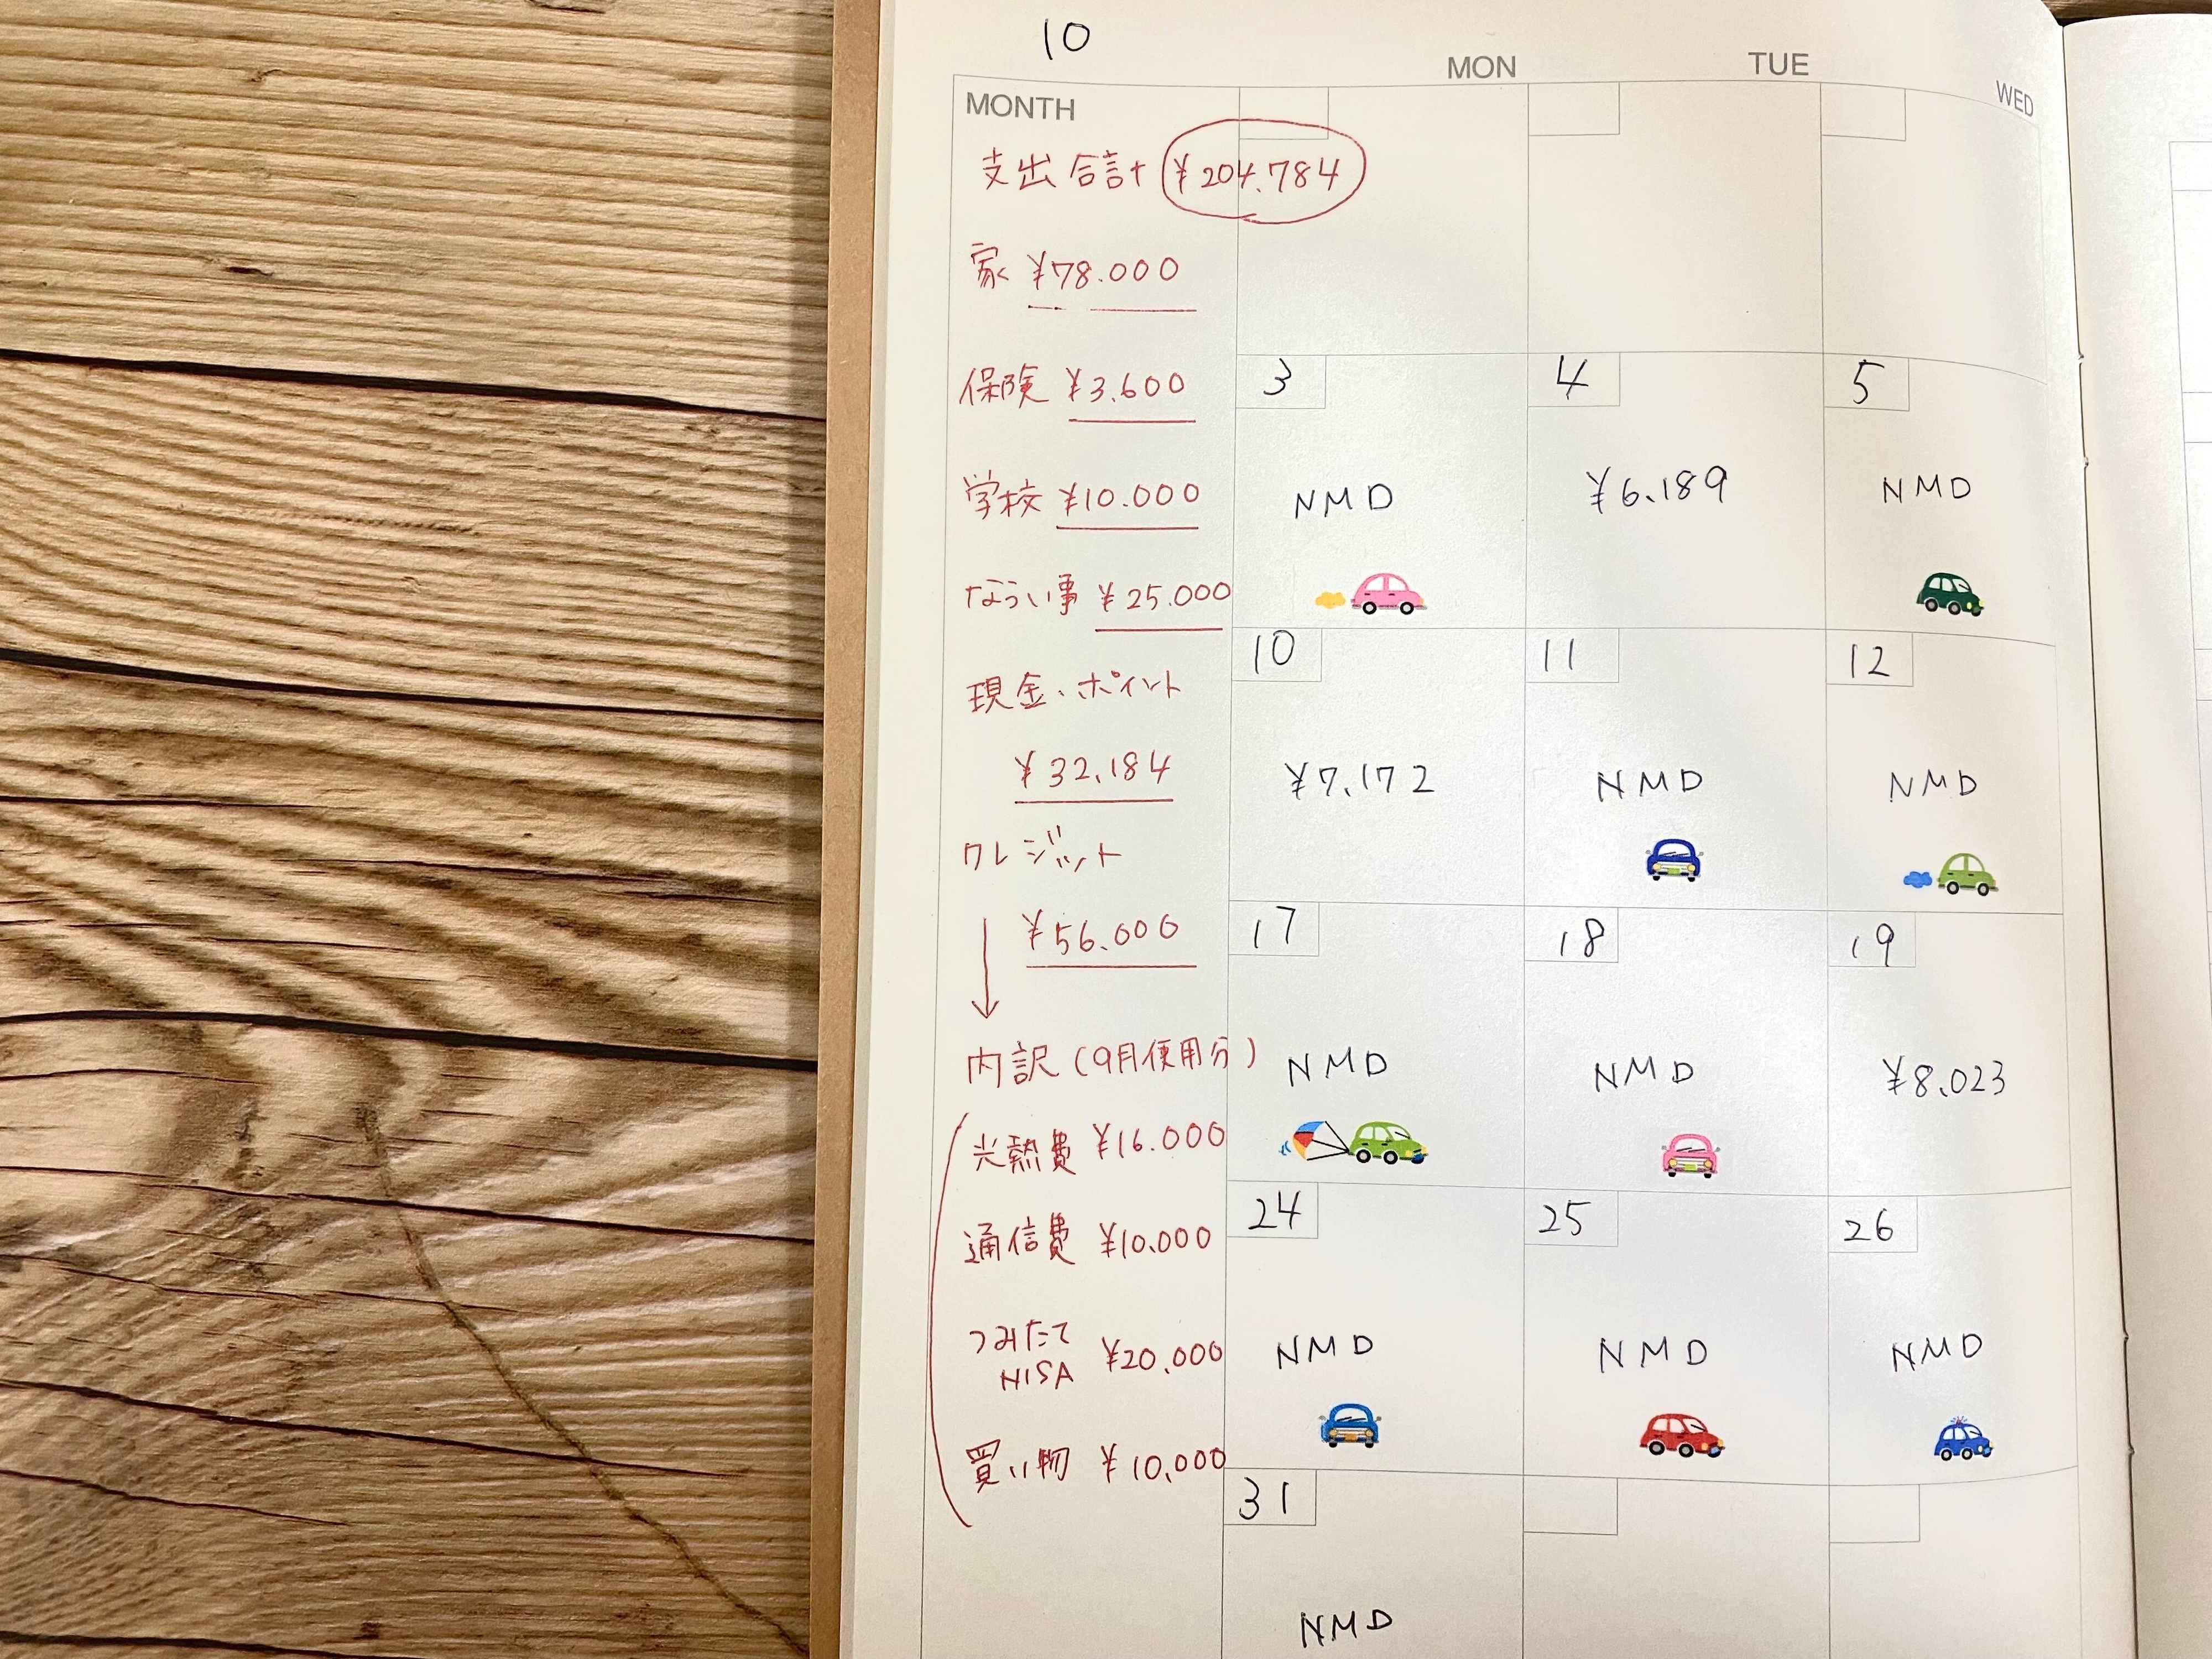 10
MON TUE WED
MONTH
支出合計 ¥204.784
家 ¥78.000
保険 ¥3.600
学校 ¥10.000
ならい事 ¥25.000
現金、ポイント
¥32,184
クレジット
¥56.000
内訳(9月使用分)
光熱費 ¥16.000
通信費 ¥10.000
つみたて
NISA ¥20,000
買い物 ¥10,000
3 4 5
NMD ¥6.189 NMD
10 11 12
¥7.172 NMD NMD
17 18 19
NMD NMD ¥8.023
24 25 26
NMD NMD NMD
31
NMD